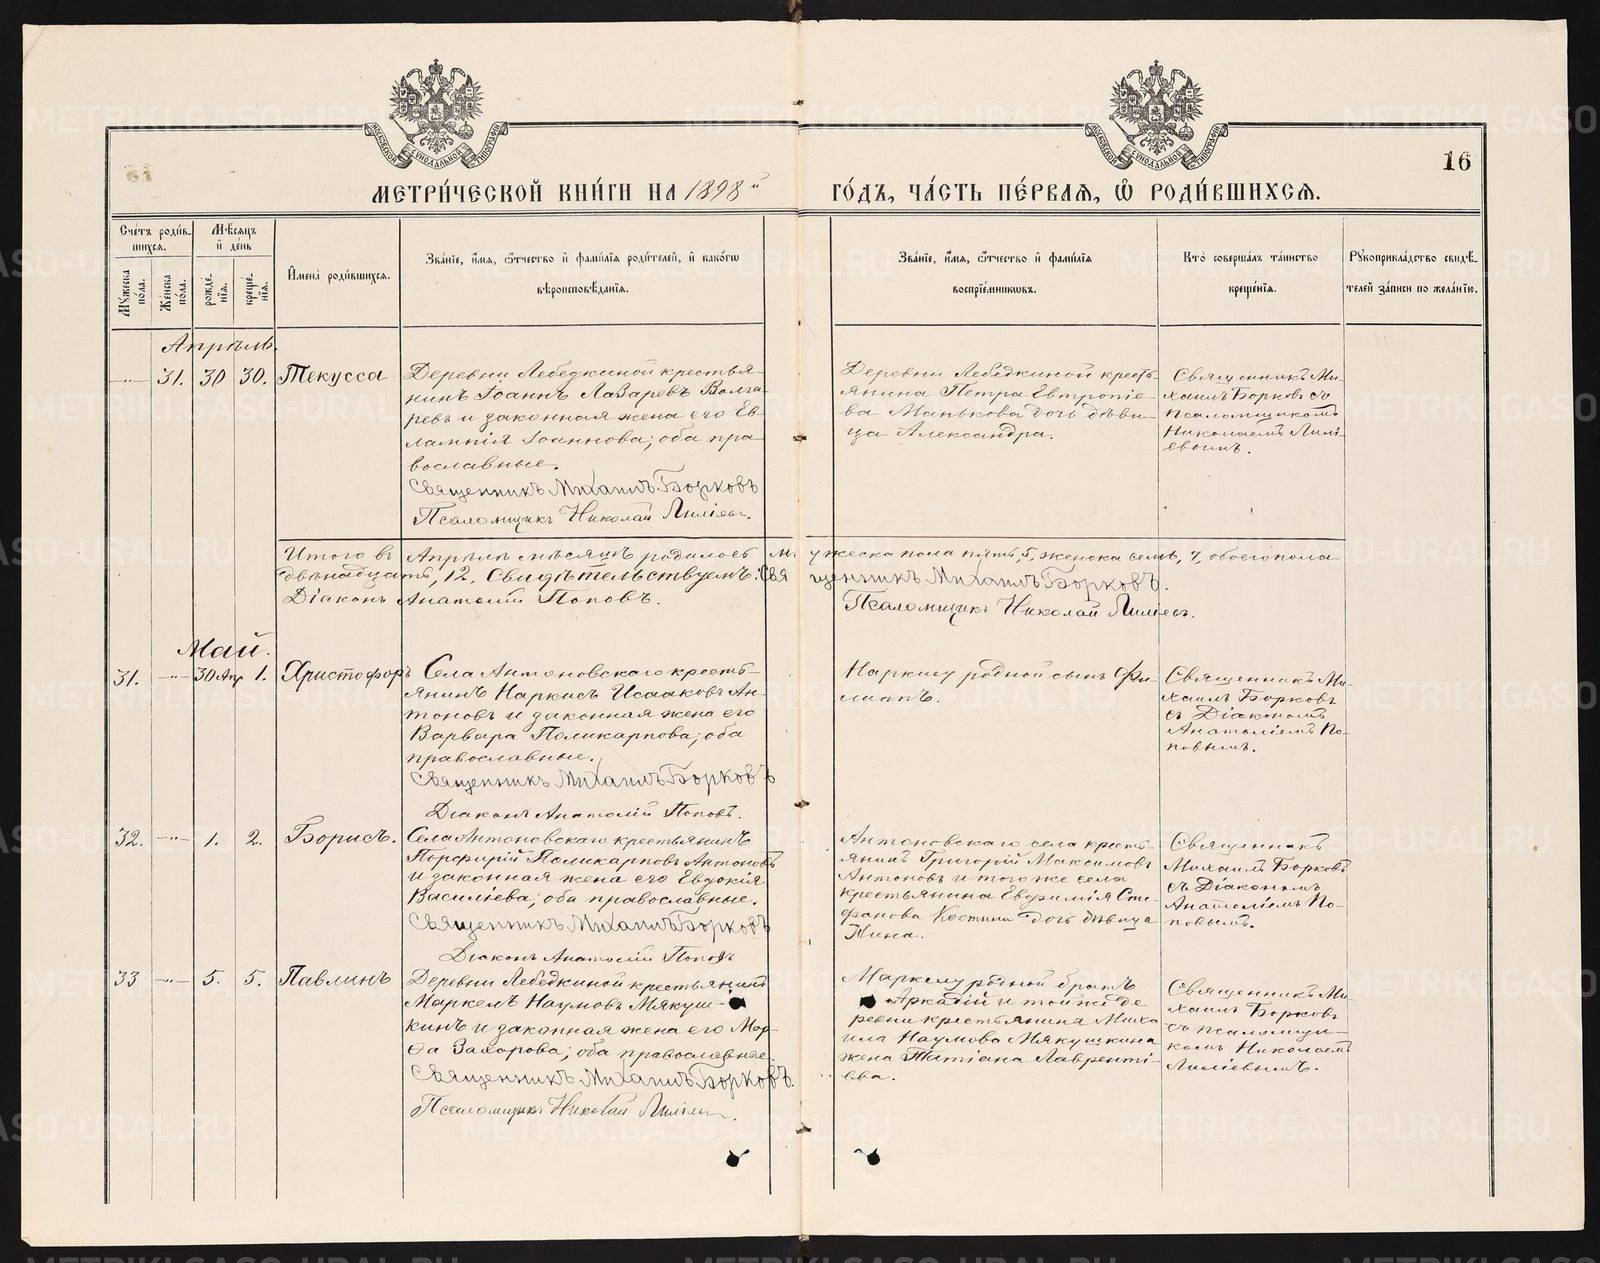 МОСКОВСКОЙ СѴНОДАЛЬНОЙ ТИПОГРАФІИ
МОСКОВСКОЙ СѴНОДАЛЬНОЙ ТИПОГРАФІИ
16
МЕТРИ́ЧЕСКОЙ КНИ́ГИ НА 1898й ГО́ДЪ, ЧА́СТЬ ПЕ́РВАѦ, Ѡ҆ РОДИ́ВШИХСѦ.
Сче́тъ роди́в-
шихсѧ.
Мꙋ́жеска
по́ла.
Же́нска
по́ла.
Мѣ́сѧцъ
и҆ де́нь
рожде́-
нїѧ.
креще́-
нїѧ.
И҆мена̀ роди́вшихсѧ.
Зва́нїе, и҆́мѧ, ѻ҆́тчество и҆ фами́лїѧ роди́телей, и҆ како́гѡ
вѣроисповѣ́данїѧ.
Зва́нїе, и҆́мѧ, ѻ҆́тчество и҆ фами́лїѧ
воспрїе́мникѡвъ.
Кто̀ соверша́лъ та́инство
креще́нїѧ.
Рꙋкоприкла́дство свидѣ́-
телей за́писи по жела́нїю.
Апрѣль.
—"— 31. 30 30. Текусса
Деревни Лебедкиной крестья-
нинъ Іоаннъ Лазаревъ Волга-
ревъ и законная жена его Ев-
лампія Іоаннова; оба пра-
вославные.
Священникъ Михаилъ Борковъ
Псаломщикъ Николай Лиліевъ.
Деревни Лебедкиной кресть-
янина Петра Евтропіе-
ва Манькова дочь дѣви-
ца Александра.
Священникъ Ми-
хаилъ Борковъ съ
псаломщикомъ
Николаемъ Лилі-
евымъ.
Итого въ Апрѣлѣ мѣсяцѣ родилось мужеска пола пять, 5, женска семь, 7, обоего пола
двѣнадцать, 12. Свидѣтельствуемъ: Священникъ Михаилъ Борковъ.
Діаконъ Анатолій Поповъ. Псаломщикъ Николай Лиліевъ.
Май.
31. —"— 30 Апр 1. Христофоръ
Села Антоновскаго кресть-
янинъ Наркисъ Исааковъ Ан-
тоновъ и законная жена его
Варвара Поликарпова; оба
православные.
Священникъ Михаилъ Борковъ
Діаконъ Анатолій Поповъ.
Наркису родной сынъ Фи-
липпъ.
Священникъ Ми-
хаилъ Борковъ
съ Діакономъ
Анатоліемъ По-
повымъ.
32. —"— 1. 2. Борисъ.
Села Антоновскаго крестьянинъ
Порфирій Поликарповъ Антоновъ
и законная жена его Евдокія
Василіева; оба православные.
Священникъ Михаилъ Борковъ
Діаконъ Анатолій Поповъ
Антоновскаго села кресть-
янинъ Григорій Максимовъ
Антоновъ и того же села
крестьянина Евфимія Сте-
фанова Костина дочь дѣвица
Нина.
Священникъ
Михаилъ Борковъ
съ Діакономъ
Анатоліемъ По-
повымъ.
33 —"— 5. 5. Павлинъ
Деревни Лебедкиной крестьянинъ
Маркелъ Наумовъ Мякуш-
кинъ и законная жена его Мар-
ѳа Захарова; оба православные.
Священникъ Михаилъ Борковъ.
Псаломщикъ Николай Лиліевъ.
Маркелу родной братъ
Аркадій и той же де-
ревни крестьянина Миха-
ила Наумова Мякушкина
жена Татіана Лавренті-
ева.
Священникъ Ми-
хаилъ Борковъ
съ псаломщи-
комъ Николаемъ
Лиліевымъ.
METRIKI.GASO-URAL.RU